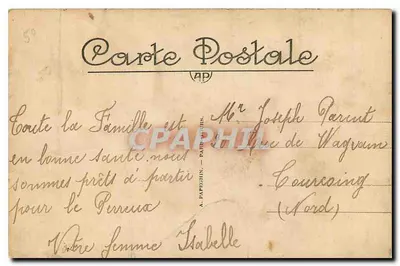 Carte Postale
AP
Toute la Famille est
en bonne santé nous
sommes prêts à partir
pour le Perreux
Votre femme Isabelle
Mr Joseph Parent
Rue de Wagram
Tourcoing
(Nord)
CPAPHIL